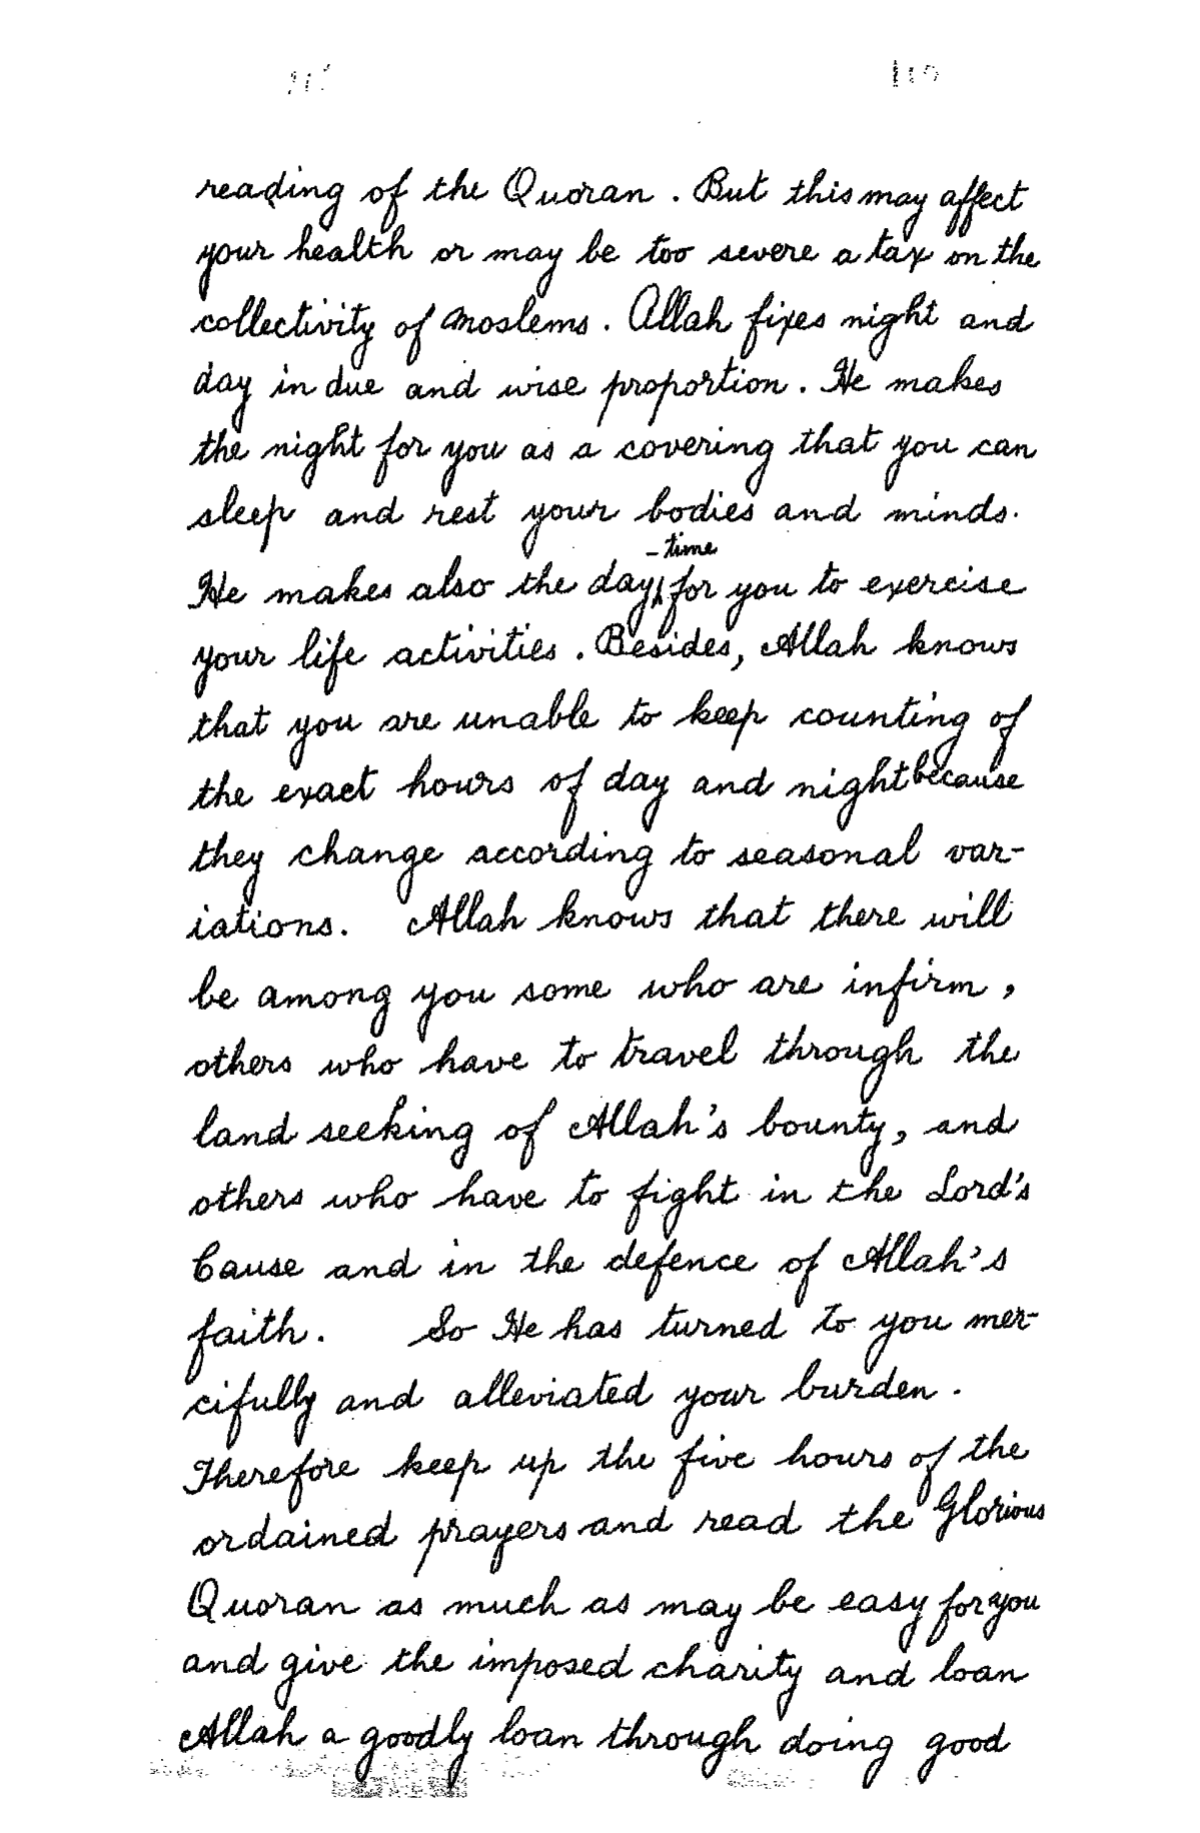 reading of the Quoran. But this may affect
your health or may be too severe a tax on the
collectivity of Moslems. Allah fixes night and
day in due and wise proportion. He makes
the night for you as a covering that you can
sleep and rest your bodies and minds.
-time
He makes also the day for you to exercise
your life activities. Besides, Allah knows
that you are unable to keep counting of
the exact hours of day and night because
they change according to seasonal var-
iations. Allah knows that there will
be among you some who are infirm,
others who have to travel through the
land seeking of Allah's bounty, and
others who have to fight in the Lord's
Cause and in the defence of Allah's
faith. So He has turned to you mer-
cifully and alleviated your burden.
Therefore keep up the five hours of the
ordained prayers and read the Glorious
Quoran as much as may be easy for you
and give the imposed charity and loan
Allah a goodly loan through doing good